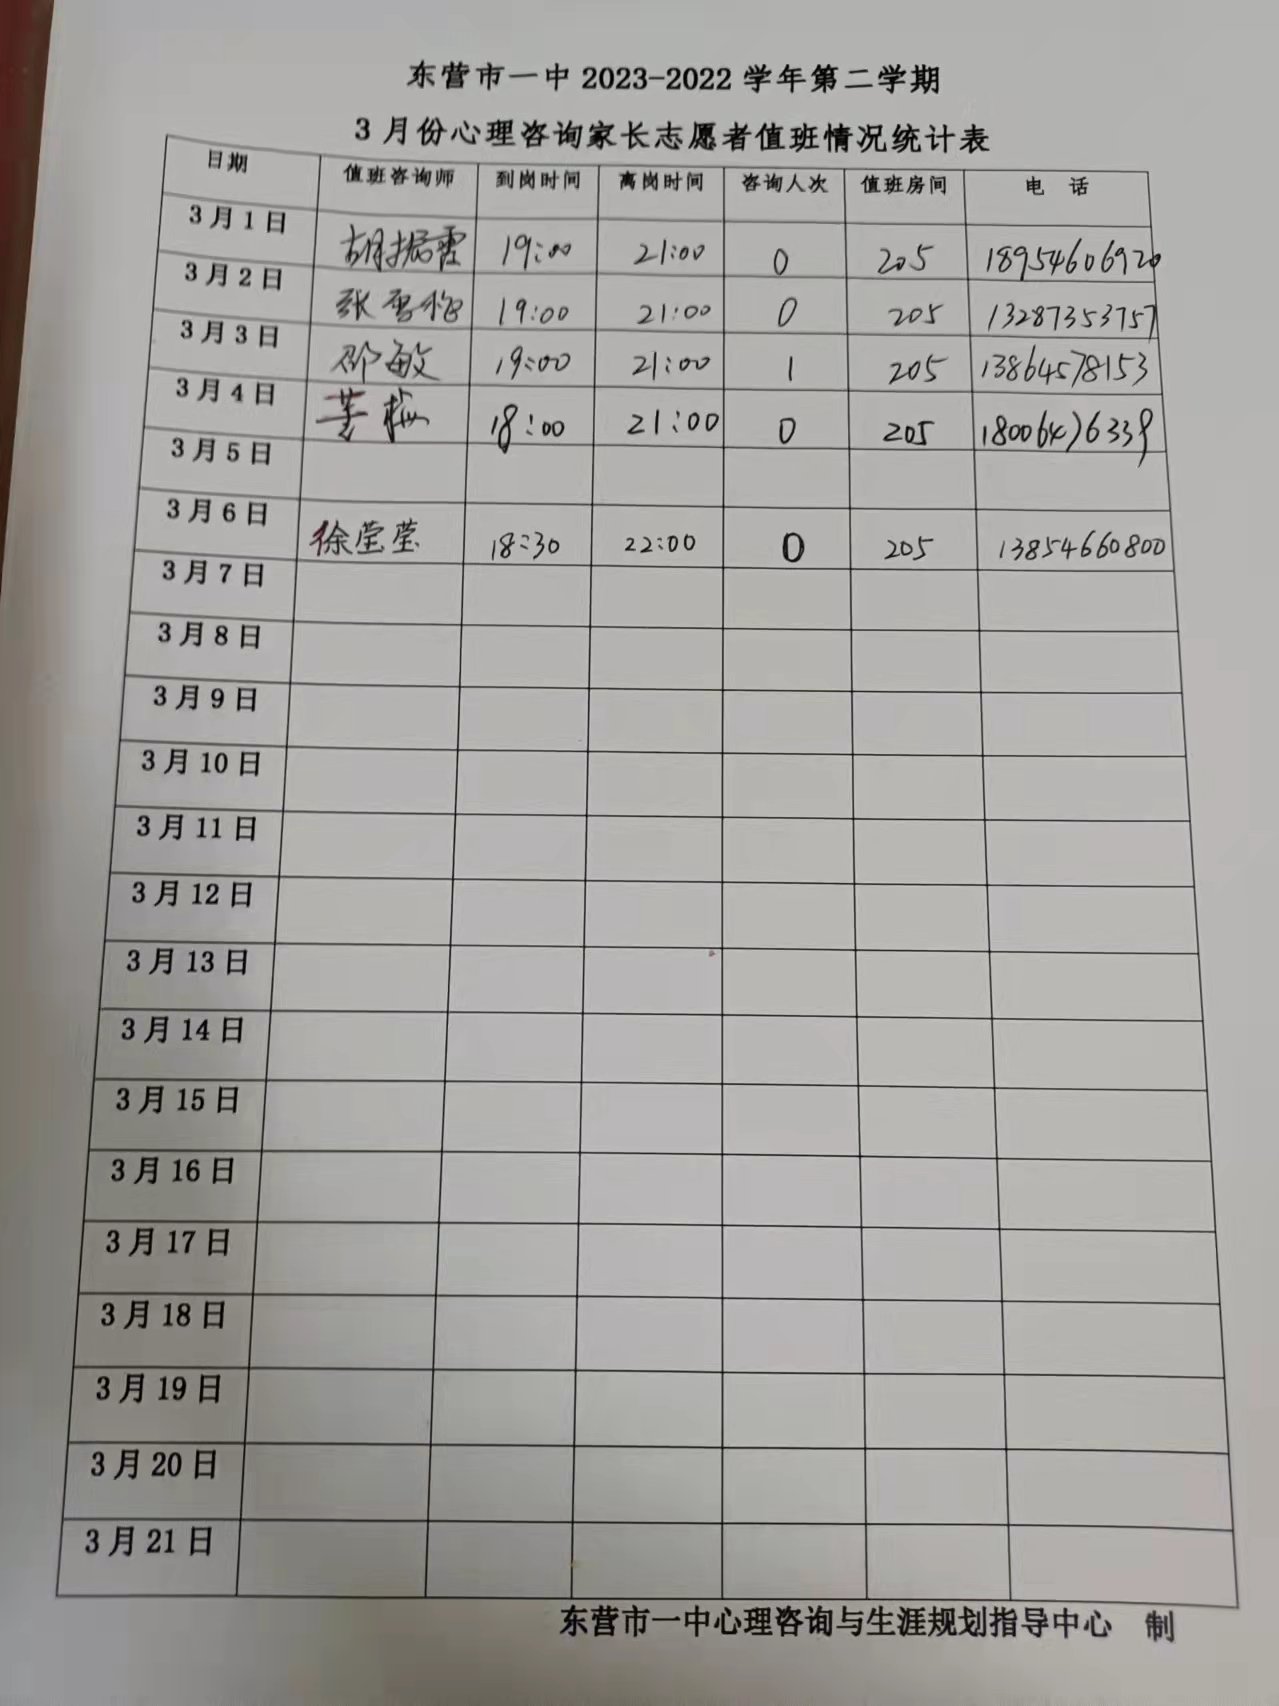 东营市一中 2023-2022 学年第二学期
3 月份心理咨询家长志愿者值班情况统计表
日期 值班咨询师 到岗时间 离岗时间 咨询人次 值班房间 电 话
3 月 1 日 胡振霞 19:00 21:00 0 205 18954606920
3 月 2 日 张雪梅 19:00 21:00 0 205 13287353757
3 月 3 日 邵敏 19:00 21:00 1 205 13864578153
3 月 4 日 梅 18:00 21:00 0 205 18006476339
3 月 5 日
3 月 6 日 徐莹莹 18:30 22:00 0 205 13854660800
3 月 7 日
3 月 8 日
3 月 9 日
3 月 10 日
3 月 11 日
3 月 12 日
3 月 13 日
3 月 14 日
3 月 15 日
3 月 16 日
3 月 17 日
3 月 18 日
3 月 19 日
3 月 20 日
3 月 21 日
东营市一中心理咨询与生涯规划指导中心 制